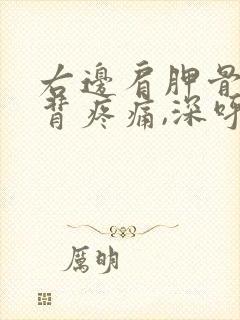 右邊肩胛骨
背疼痛,深呼
厲明